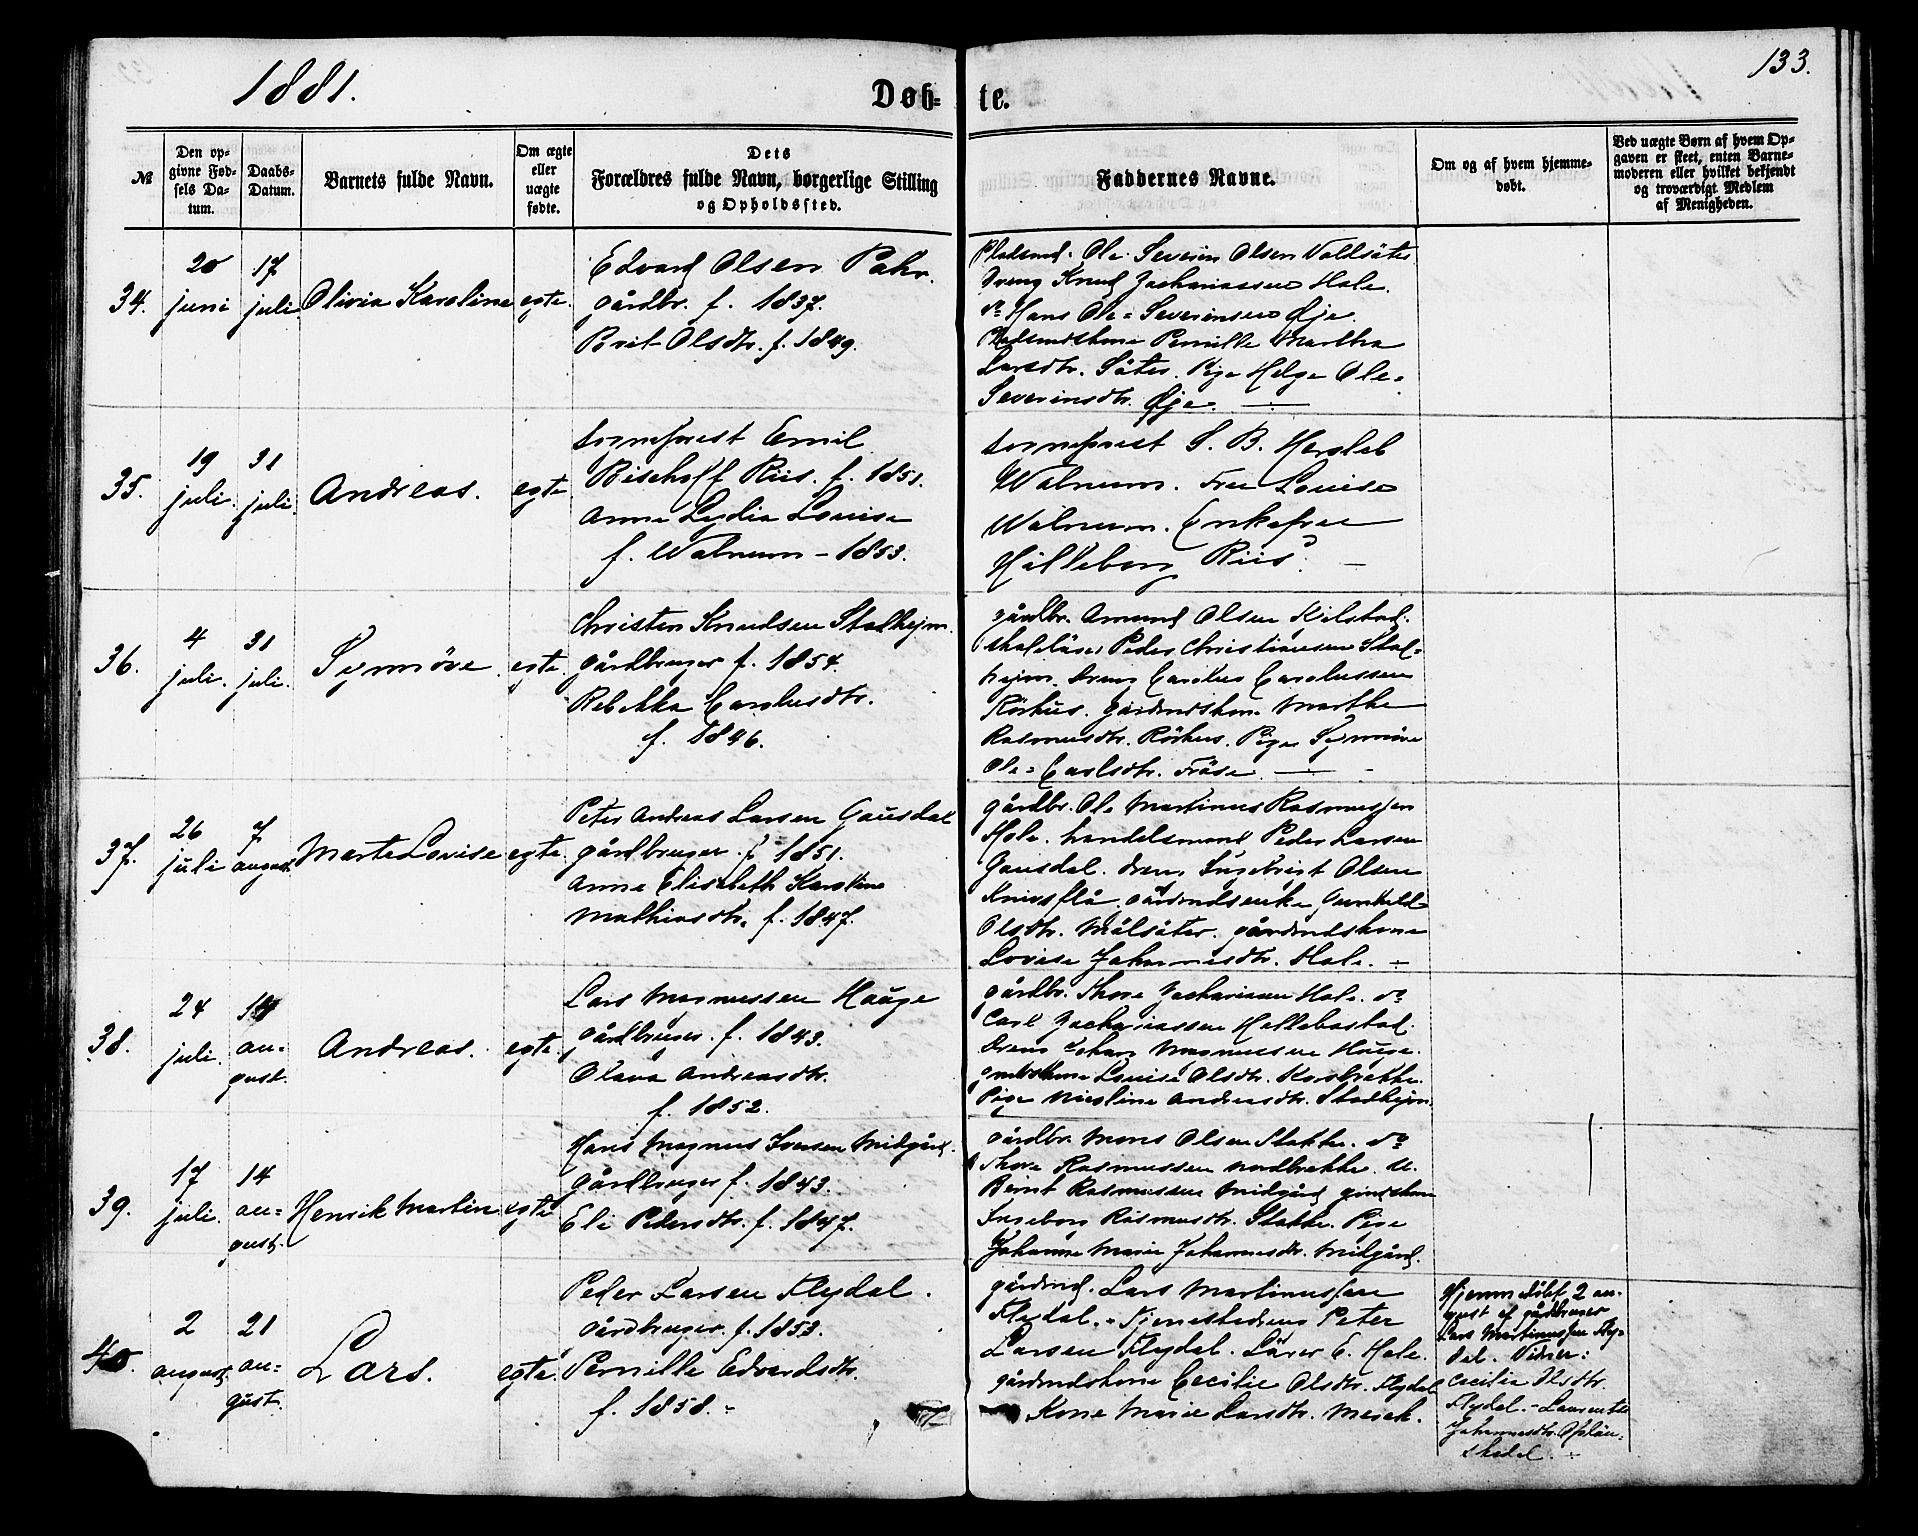 1881.
Døb=
te.
133.
№
Den op-
givne Fød-
sels Da-
tum.
Daabs-
Datum.
Barnets fulde Navn.
Om ægte
eller
uægte
fødte.
Dets
Forældres fulde Navn, borgerlige Stilling
og Opholdssted.
Faddernes Navne.
Om og af hvem hjemme-
døbt.
Ved uægte Børn af hvem Op-
gaven er skeet, enten Barne-
moderen eller hvilket bekjendt
og troværdigt Medlem
af Menigheden.
34.
20
juni
17
juli.
Olivia Karoline
egte.
Edvard Olsen
gårdbr. f. 1837.
Brit Olsdtr. f. 1849.
Pladsmd. Ole Severin Olsen
Dreng Knud Zachariassen Hole.
do Hans Ole=Severinsen Øje.
Pladsmdskone Pernille Martha
Larsdtr. Säter. Pige Helge Ole=
Severinsdtr. Øje.
35.
19
juli.
31
juli.
Andreas.
egte
Sogneprest Emil
Bischoff Riis. f. 1851.
Anna Lydia Louise
f. Walnum - 1853.
Sogneprest S. B. Hersleb
Walnum. Fru Louise
Walnum. Enkefrue
Hilleborg Riis.
36.
4
juli.
31
juli.
Synnøve
egte.
Christen Knudsen Stadhejm.
gårdbruger f. 1854.
Rebekka Carolusdtr.
f. 1846.
gårdbr. Amund Olsen Kilstad.
Peder Christiansen Stad=
hejm. Dreng Carolus Carolussen
Rörhus. gårdmdskone Marthe
Rasmusdtr. Rörhus. Pige Synnöve
Ole=Carlsdtr. Fröse.
37.
26
juli
7
august.
Marte Lovise
egte.
Peter Andreas Larsen Gausdal
gårdbruger. f. 1851.
Anne Elisabeth Karoline
Mathiasdtr. f. 1847.
gårdbr. Ole Martinus Rasmussen
Hole. handelsmand Peder Larsen
Gausdal. dreng Ingebrigt Olsen
Knivsflå. gårdmdsenke Gunhild
Olsdtr. Mälsäter. gårdmdskone
Lovise Johannesdtr. Hole.
38.
24
juli.
14
au=
gust.
Andreas.
egte.
Lars Magnussen Hauge
gårdbruger. f. 1843.
Olava Andreasdtr.
f. 1852.
gårdbr. Thore Zachariasen Hole. do
Carl Zachariassen Hellebostad.
Dreng Johan Magnussen Hauge.
gmdskone Louise Olsdtr. Korsbrekke.
Pige Nicoline Andreasdtr. Stadhejm.
39.
17
juli.
14
au=
gust.
Henrik Martin
egte
Hans Magnus Iversen Midgård.
gårdbruger f. 1843.
Eli Pedersdtr. f. 1847.
gårdbr. Mons Olsen Stakke. do
Thore Rasmussen Nordbrekke. U.
Bernt Rasmussen Midgård gmdskone
Ingeborg Rasmusdtr. Stakke. Pige
Johanne Marie Johannesdtr. Midgård.
40.
2
august.
21
au=
gust.
Lars.
egte.
Peder Larsen Flydal.
gårdbruger. f. 1853.
Pernille Edvardsdtr.
f. 1858.
gårdmd. Lars Martinussen
Flydal. Tjenestedreng Peter
Larsen Flydal. Lärer E. Hole.
gårdmdskone Cecilie Olsdtr. Flydal
Kone Marie Larsdtr. Merok.
Hjemmedöbt 2 au=
gust af gårdbruger
Lars Martinussen Fly=
dal. Vidner:
Cecilia Olsdtr.
Flydal. - Laurentse
Johannesdtr. Oplän=
skedal.